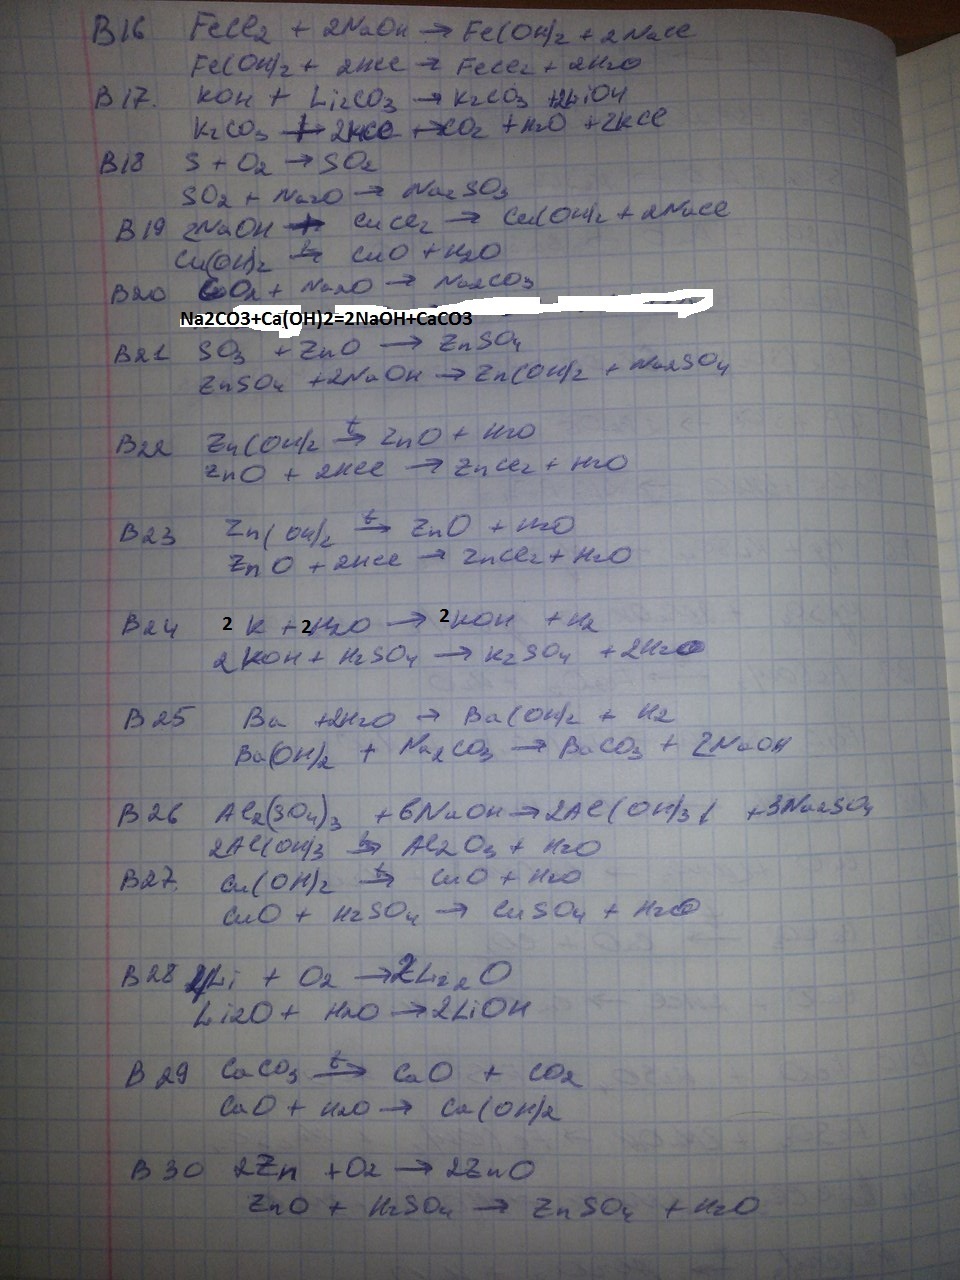 В16 FeCl2 + 2NaOH → Fe(OH)2 + 2NaCl
Fe(OH)2 + 2HCl → FeCl2 + 2H2O
В17. KOH + Li2CO3 → K2CO3 + 2LiOH
K2CO3 + 2HCl → CO2 + H2O + 2KCl
В18 S + O2 → SO2
SO2 + Na2O → Na2SO3
В19 2NaOH + CuCl2 → Cu(OH)2 + 2NaCl
Cu(OH)2 t→ CuO + H2O
В20 CO2 + Na2O → Na2CO3
Na2CO3+Ca(OH)2=2NaOH+CaCO3
В21 SO3 + ZnO → ZnSO4
ZnSO4 + 2NaOH → Zn(OH)2 + Na2SO4
В22 Zn(OH)2 t→ ZnO + H2O
ZnO + 2HCl → ZnCl2 + H2O
В23 Zn(OH)2 t→ ZnO + H2O
ZnO + 2HCl → ZnCl2 + H2O
В24 2 K + 2H2O → 2KOH + H2
2KOH + H2SO4 → K2SO4 + 2H2O
В25 Ba + 2H2O → Ba(OH)2 + H2
Ba(OH)2 + Na2CO3 → BaCO3 + 2NaOH
В26 Al2(SO4)3 + 6NaOH → 2Al(OH)3↓ + 3Na2SO4
2Al(OH)3 t→ Al2O3 + H2O
В27. Cu(OH)2 t→ CuO + H2O
CuO + H2SO4 → CuSO4 + H2O
В28 4Li + O2 → 2Li2O
Li2O + H2O → 2LiOH
В29 CaCO3 t→ CaO + CO2
CaO + H2O → Ca(OH)2
В30 2Zn + O2 → 2ZnO
ZnO + H2SO4 → ZnSO4 + H2O